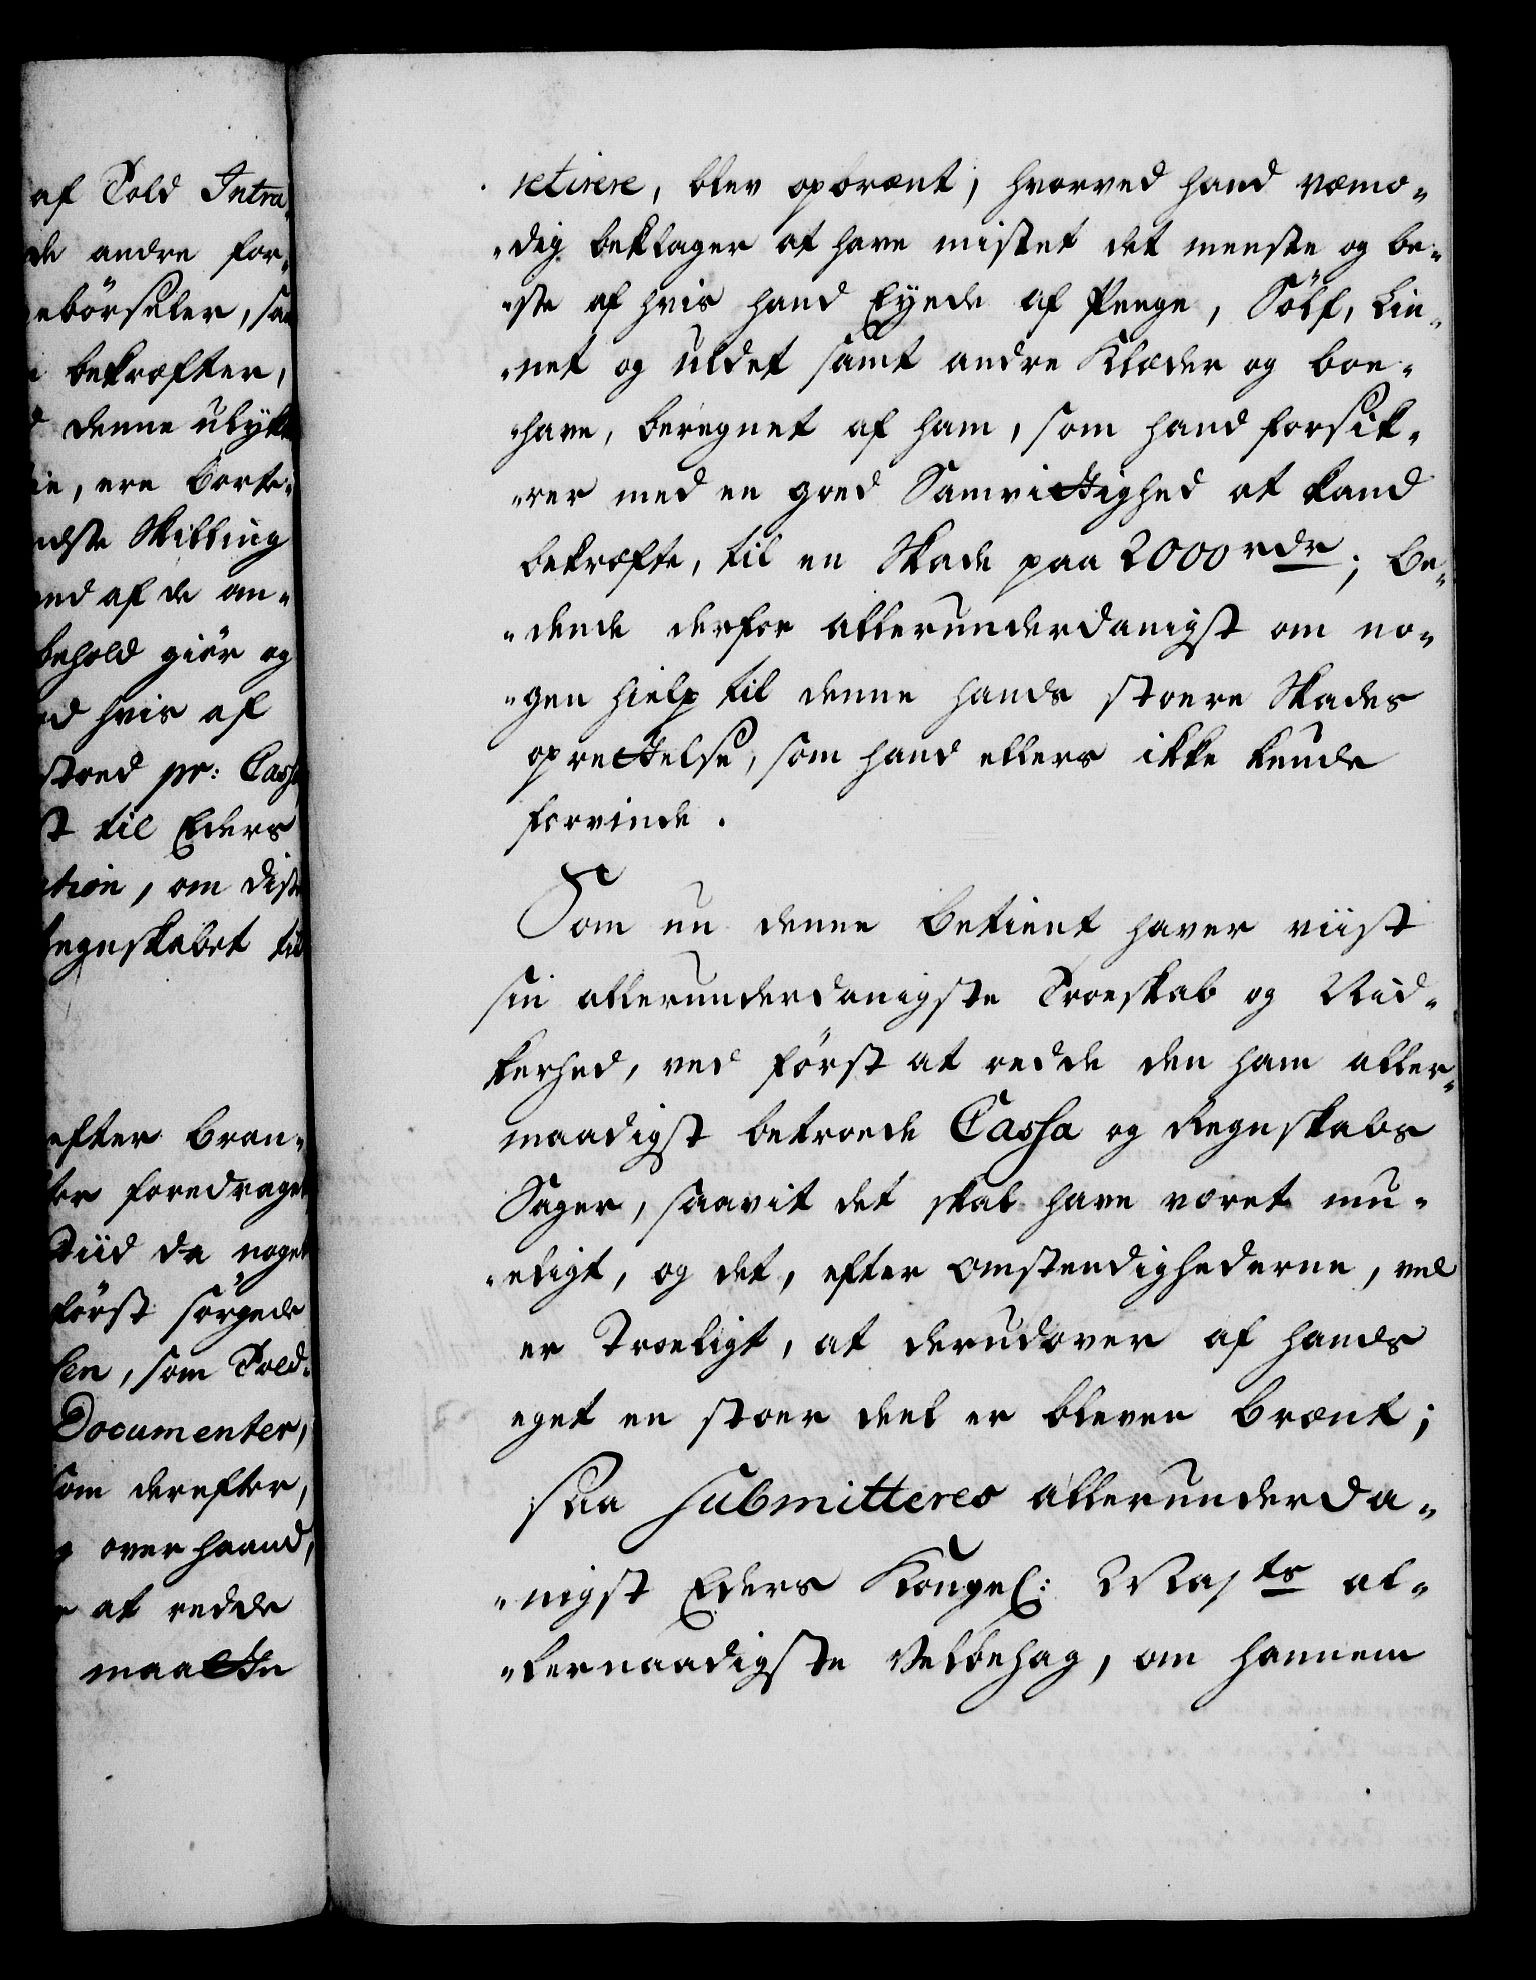 af Told Intra-
de andre for-
ebörseler, saa
bekræfter,
denne ulykk
ie, ere borte-
idste Skilling
end af de an-
behold giör og
ed hvis af
stoed pr: Cassa
st til Eders
ation, om diste
Regnskabet til
efter bran-
ter foredraget
Tiid da noget
först sörgede
len, som Told-
Documenter,
som derefter,
g over haand,
at redde
maatte
retirere, blev opbrænt; hvorved hand væmo-
-dig beklager at have mistet det meeste og be-
-ste af hvis hand Eyede af Penge, Sölf, Lin-
-net og uldet samt andre Klæder og boe-
-have, beregnet af ham, som hand forsik-
-rer med en goed Samvittighed at kand
bekræfte, til en Skade paa 2000 rdr; be-
-dende derfor allerunderdanigst om no-
-gen hielp til denne hands stoere Skades
oprettelse, som hand ellers ikke kunde
forvinde.
Som nu denne betient haver viist
sin allerunderdanigste Troeskab og Nid-
kerhed, ved först at redde den ham aller-
naadigst betroede Cassa og Regnskabs
Sager, saavit det skal have været mu-
-eligt, og det, efter omstendighederne, vel
er Troeligt, at derudover af hands
eget en stoer deel er bleven brænt;
saa submitteres allerunderda-
-nigst Eders Kongel: Mayts al-
-lernaadigste Velbehag, om hannem